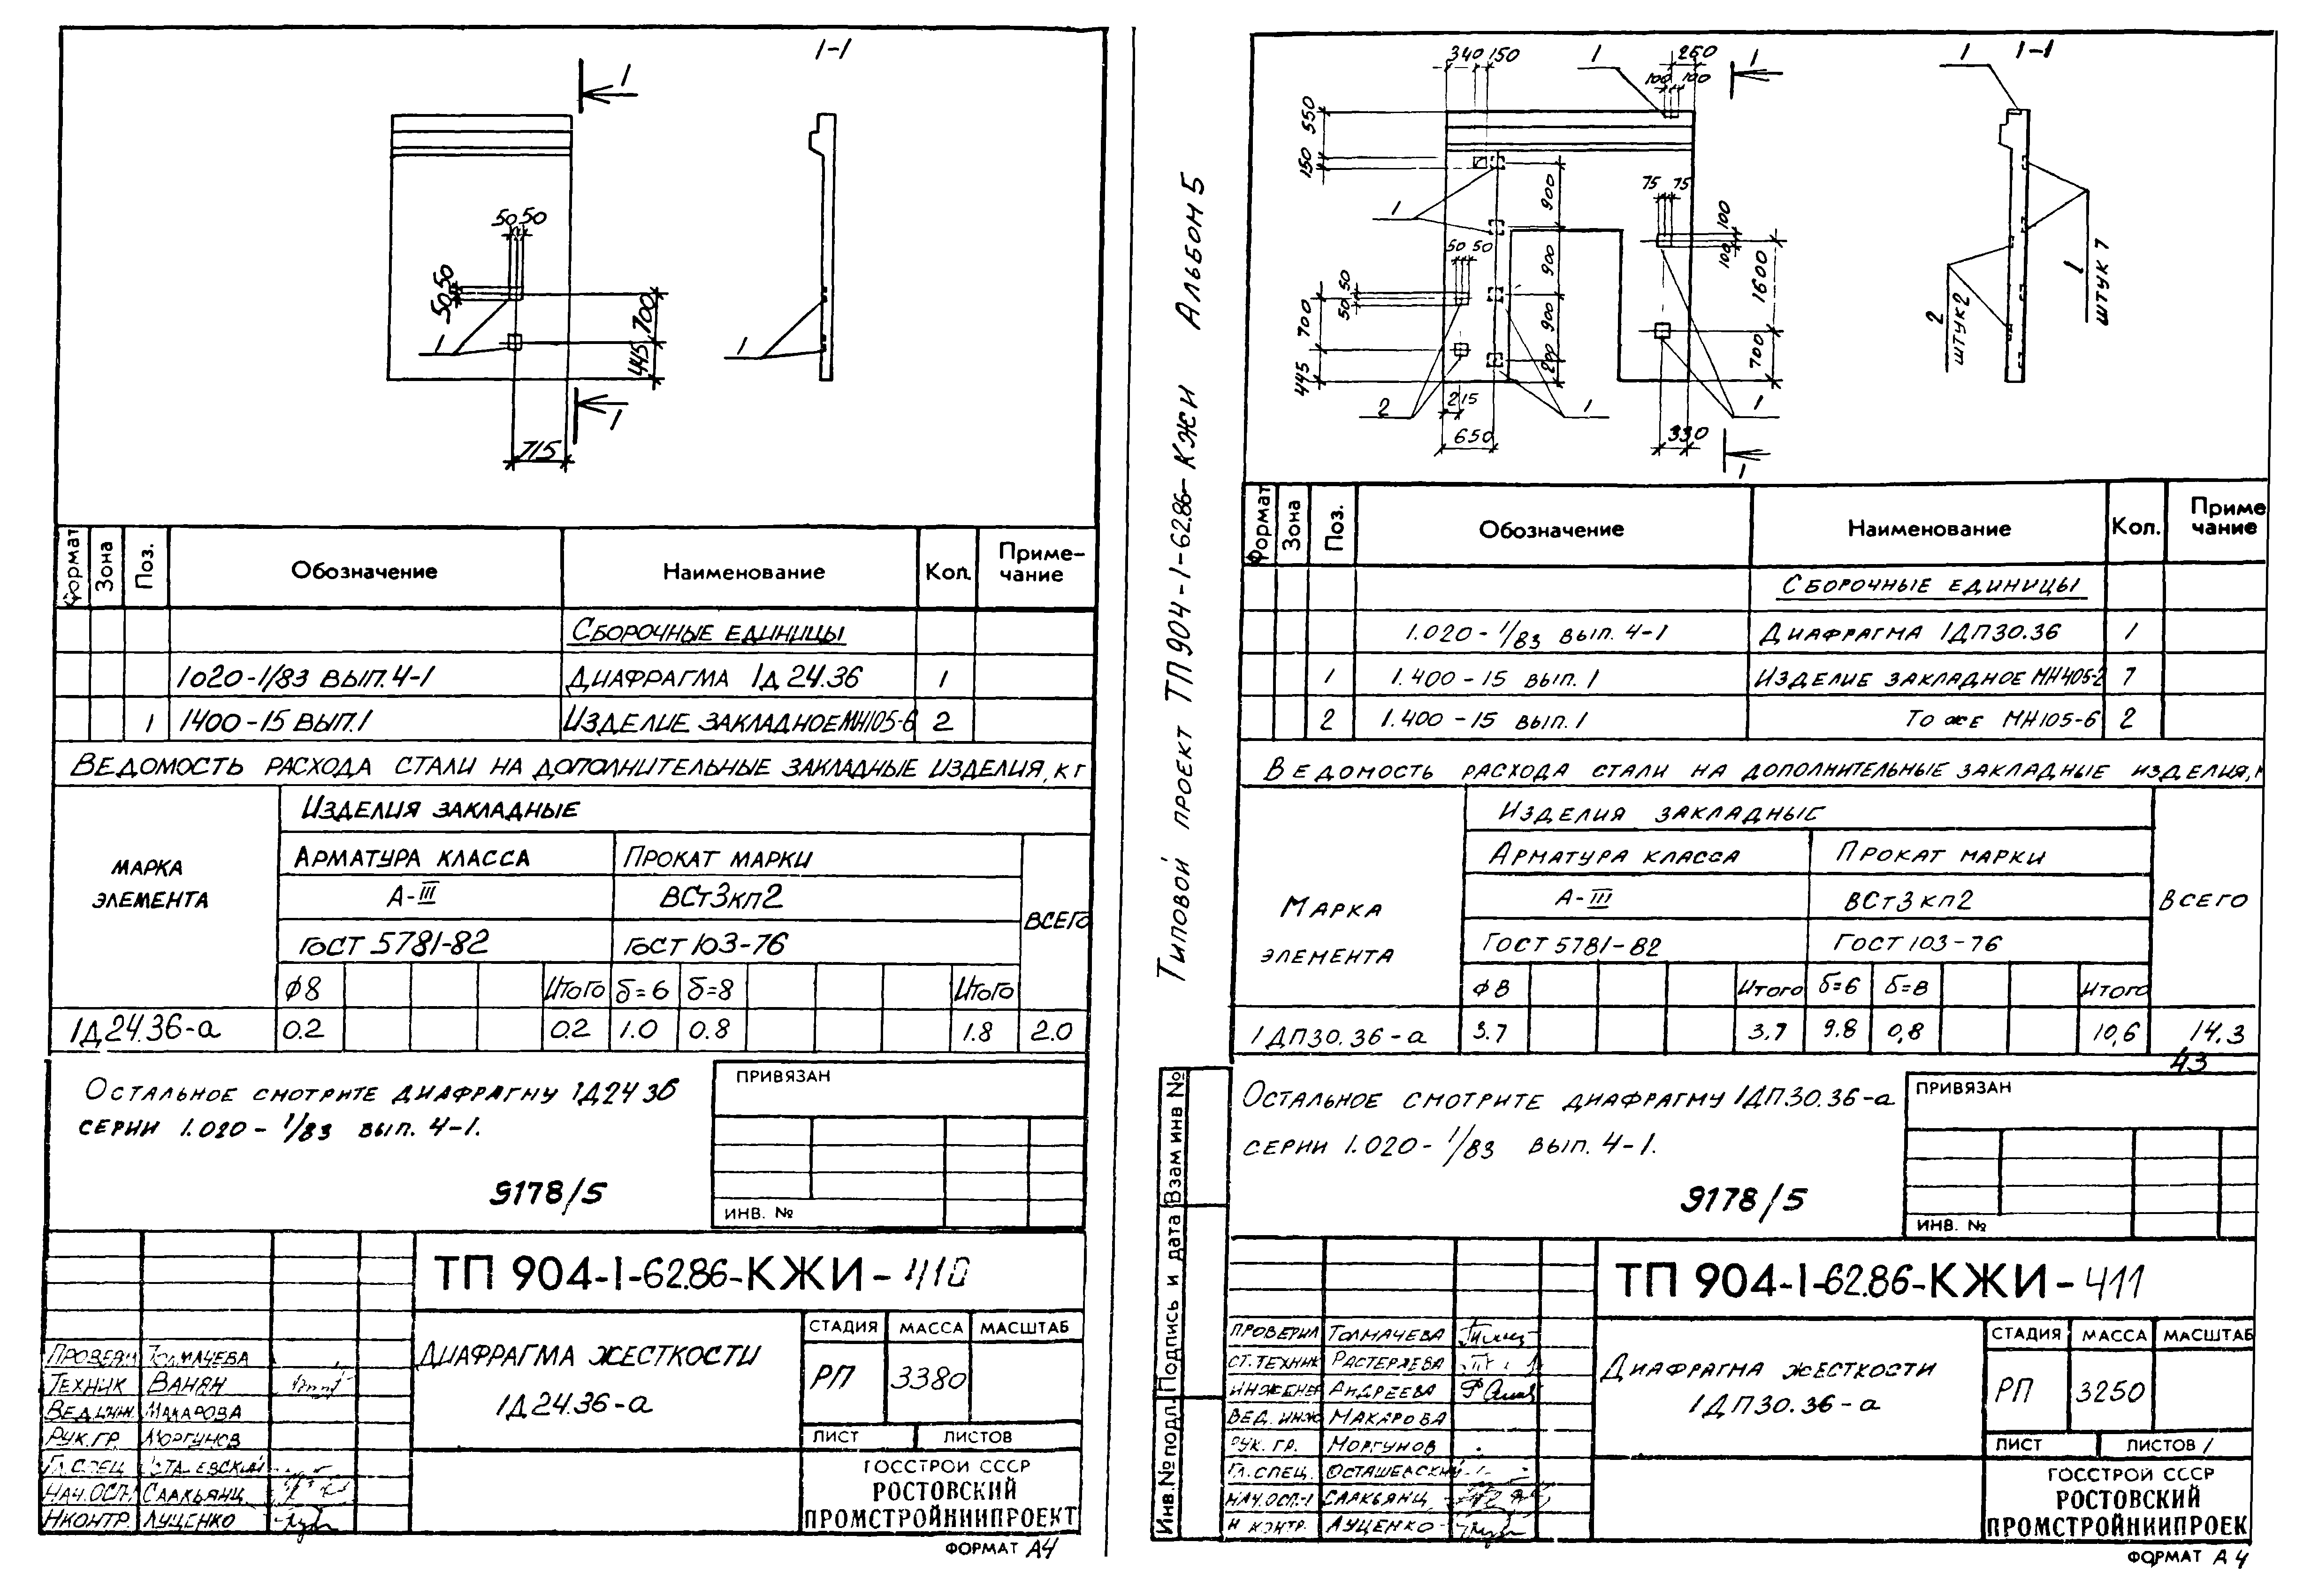 1-1
1
50 50
50 50
700
445
1
1
1
715
Формат
Зона
Поз.
Обозначение
Наименование
Кол.
Приме-
чание
Сборочные единицы
1020-1/83 вып.4-1 Диафрагма 1Д 24.36 1
1 1400-15 вып.1 Изделие закладное МН105-6 2
Ведомость расхода стали на дополнительные закладные изделия, кг
Марка
элемента
Изделия закладные
Арматура класса Прокат марки
А-III ВСт3кп2
ГОСТ 5781-82 ГОСТ 103-76
Всего
ф8 Итого δ=6 δ=8 Итого
1Д24.36-а 0.2 0.2 1.0 0.8 1.8 2.0
Остальное смотрите диафрагму 1Д24 36
серии 1.020-1/83 вып. 4-1.
9178/5
Привязан
Инв. №
ТП 904-1-62.86-КЖИ-410
Диафрагма жесткости
1Д24.36-а
Стадия Масса Масштаб
РП 3380
Лист Листов
Госстрой СССР
Ростовский
Промстройниипроект
Техник Ванян
Вед.инж. Макарова
Рук.гр. Моргунов
Нач.осп.1 Саакьянц
Н.контр. Луценко
Формат А4
Типовой проект ТП904-1-62.86-КЖИ Альбом 5
1-1
340 150
1
260
100 100
1
1
550
150
900
75 75
100
100
1
50 50
900
1600
50 50
700
900
700
445
200
2
215
1
1
650
330
1
1
штук 7
2
штук 2
Формат
Зона
Поз.
Обозначение
Наименование
Кол.
Приме
чание
Сборочные единицы
1.020-1/83 вып. 4-1 Диафрагма 1ДП30.36 1
1 1.400-15 вып.1 Изделие закладное МН405-2 7
2 1.400-15 вып.1 То же МН105-6 2
Ведомость расхода стали на дополнительные закладные изделия,
Марка
элемента
Изделия закладные
Арматура класса Прокат марки
А-III ВСт3кп2
ГОСТ 5781-82 ГОСТ 103-76
Всего
ф8 Итого δ=6 δ=8 Итого
1ДП30.36-а 3.7 3.7 9.8 0,8 10,6 14.3
43
Остальное смотрите диафрагму 1ДП.30.36-а
серии 1.020-1/83 вып. 4-1.
9178/5
Привязан
Инв. №
Взам инв №
Подпись и дата
Инв.№ подл.
ТП 904-1-62.86-КЖИ-411
Диафрагма жесткости
1ДП30.36-а
Стадия Масса Масштаб
РП 3250
Лист Листов 1
Госстрой СССР
Ростовский
Промстройниипроек
Проверил Толмачева
Ст.техник Растеряева
Инженер Андреева
Вед. инж Макарова
Рук. гр. Моргунов
Гл.спец. Осташевский
Нач.осп-1 Саакьянц
Н контр. Луценко
Формат А4